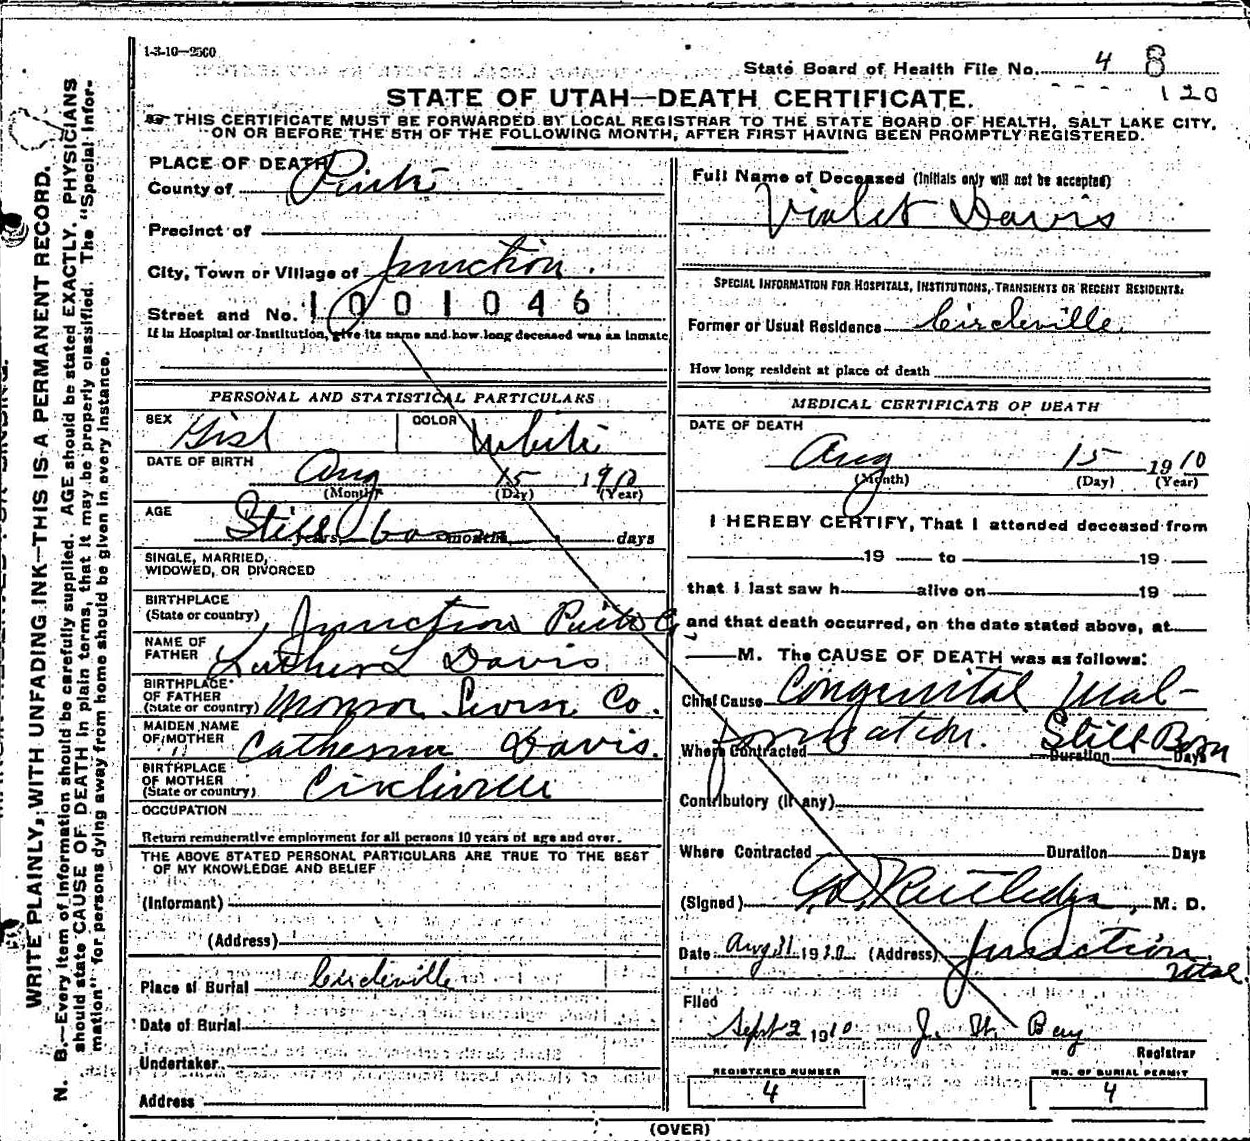 1-3-10—2500
State Board of Health File No. 4 8
120
STATE OF UTAH—DEATH CERTIFICATE.
THIS CERTIFICATE MUST BE FORWARDED BY LOCAL REGISTRAR TO THE STATE BOARD OF HEALTH, SALT LAKE CITY,
ON OR BEFORE THE 5TH OF THE FOLLOWING MONTH, AFTER FIRST HAVING BEEN PROMPTLY REGISTERED.
WRITE PLAINLY, WITH UNFADING INK—THIS IS A PERMANENT RECORD.
N. B.—Every item of information should be carefully supplied. AGE should be stated EXACTLY. PHYSICIANS
should state CAUSE OF DEATH in plain terms, that it may be properly classified. The "Special Infor-
mation" for persons dying away from home should be given in every instance.
PLACE OF DEATH
County of Piute
Precinct of
City, Town or Village of Junction.
Street and No. 1001046
If in Hospital or Institution, give its name and how long deceased was an inmate
PERSONAL AND STATISTICAL PARTICULARS
SEX Girl COLOR White
DATE OF BIRTH Aug 15 1910
(Month) (Day) (Year)
AGE Still born
years, months, days
SINGLE, MARRIED,
WIDOWED, OR DIVORCED
BIRTHPLACE
(State or country) Junction Piute Co
NAME OF
FATHER Luther L Davis
BIRTHPLACE
OF FATHER
(State or country) Monroe Sevier Co.
MAIDEN NAME
OF MOTHER Davis.
BIRTHPLACE
OF MOTHER
(State or country) Circleville
OCCUPATION
Return remunerative employment for all persons 10 years of age and over.
THE ABOVE STATED PERSONAL PARTICULARS ARE TRUE TO THE BEST
OF MY KNOWLEDGE AND BELIEF
(Informant)
(Address)
Place of Burial Circleville
Date of Burial
Undertaker
Address
Full Name of Deceased (Initials only will not be accepted)
Violet Davis
SPECIAL INFORMATION FOR HOSPITALS, INSTITUTIONS, TRANSIENTS OR RECENT RESIDENTS:
Former or Usual Residence Circleville
How long resident at place of death
MEDICAL CERTIFICATE OF DEATH
DATE OF DEATH
Aug 15 1910
(Month) (Day) (Year)
I HEREBY CERTIFY, That I attended deceased from
19 to 19
that I last saw h alive on 19
and that death occurred, on the date stated above, at
M. The CAUSE OF DEATH was as follows:
Chief Cause Congenital Mal-
formation. Still Born
Where Contracted Duration Days
Contributory (if any)
Where Contracted Duration Days
(Signed) Rutledge, M. D.
Date Aug 31 1910 (Address) Junction
Utah
Filed
Sept 2 1910 J. W. Bay
Registrar
REGISTERED NUMBER
4
NO. OF BURIAL PERMIT
4
(OVER)